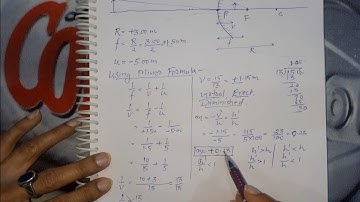 P F C
R = +3.00 m
f = R/2 = 3.00/2 = +1.50 m
u = -5.00 m
Using Mirror Formula -
1/f = 1/v + 1/u
1/v = 1/f - 1/u
1/v = 1/+1.50 - 1/-5.00
1/v = 10/15 + 1/5
1/v = 10+3/15 = 13/15
V = 15/13 = +1.15 m
Virtual, Erect
Diminished
m = -v/u = h'/h
= -1.15/-5 = 115/5×100 = 23/100 = 0.23
m = +0.23
h' > h
h'/h > 1
h' < h
h'/h < 1